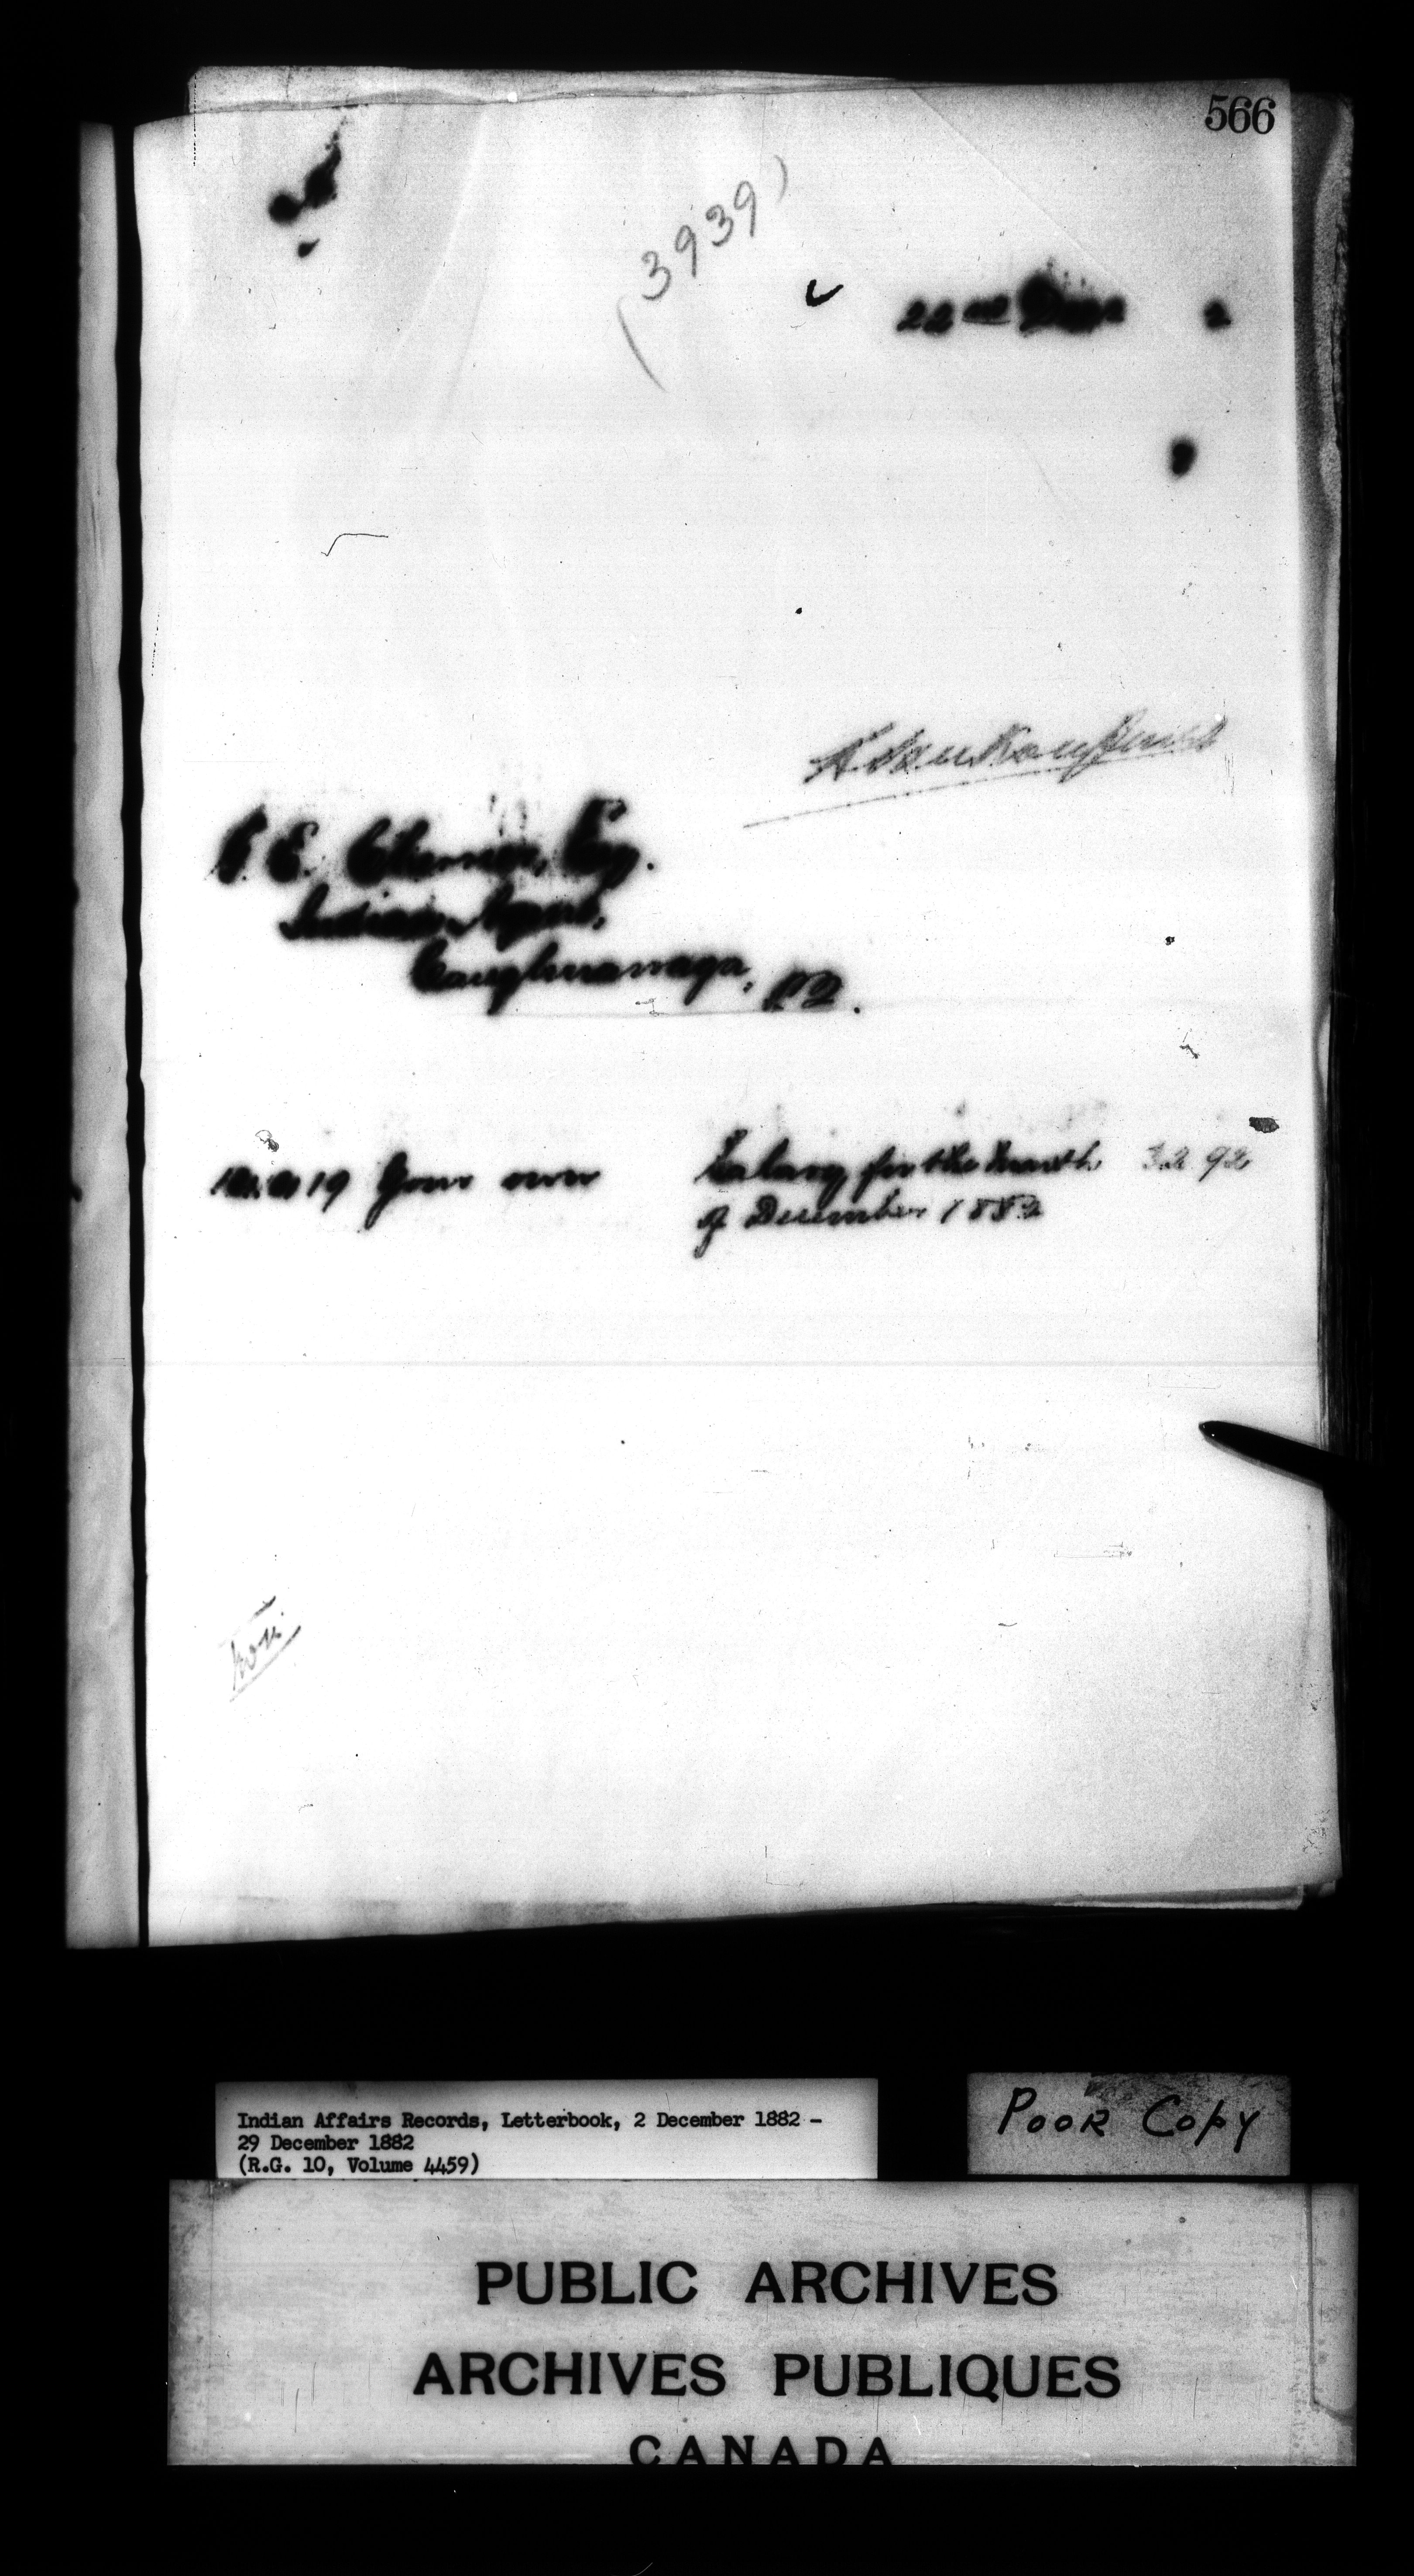 566
(3939)
22nd Decr 2
E. Esq.
Indian Agent,
Caughnawaga, P.Q.
19 Your own Salary for the Month 32 92
of December 1882
Indian Affairs Records, Letterbook, 2 December 1882 -
29 December 1882
(R.G. 10, Volume 4459)
POOR COPY
PUBLIC ARCHIVES
ARCHIVES PUBLIQUES
CANADA